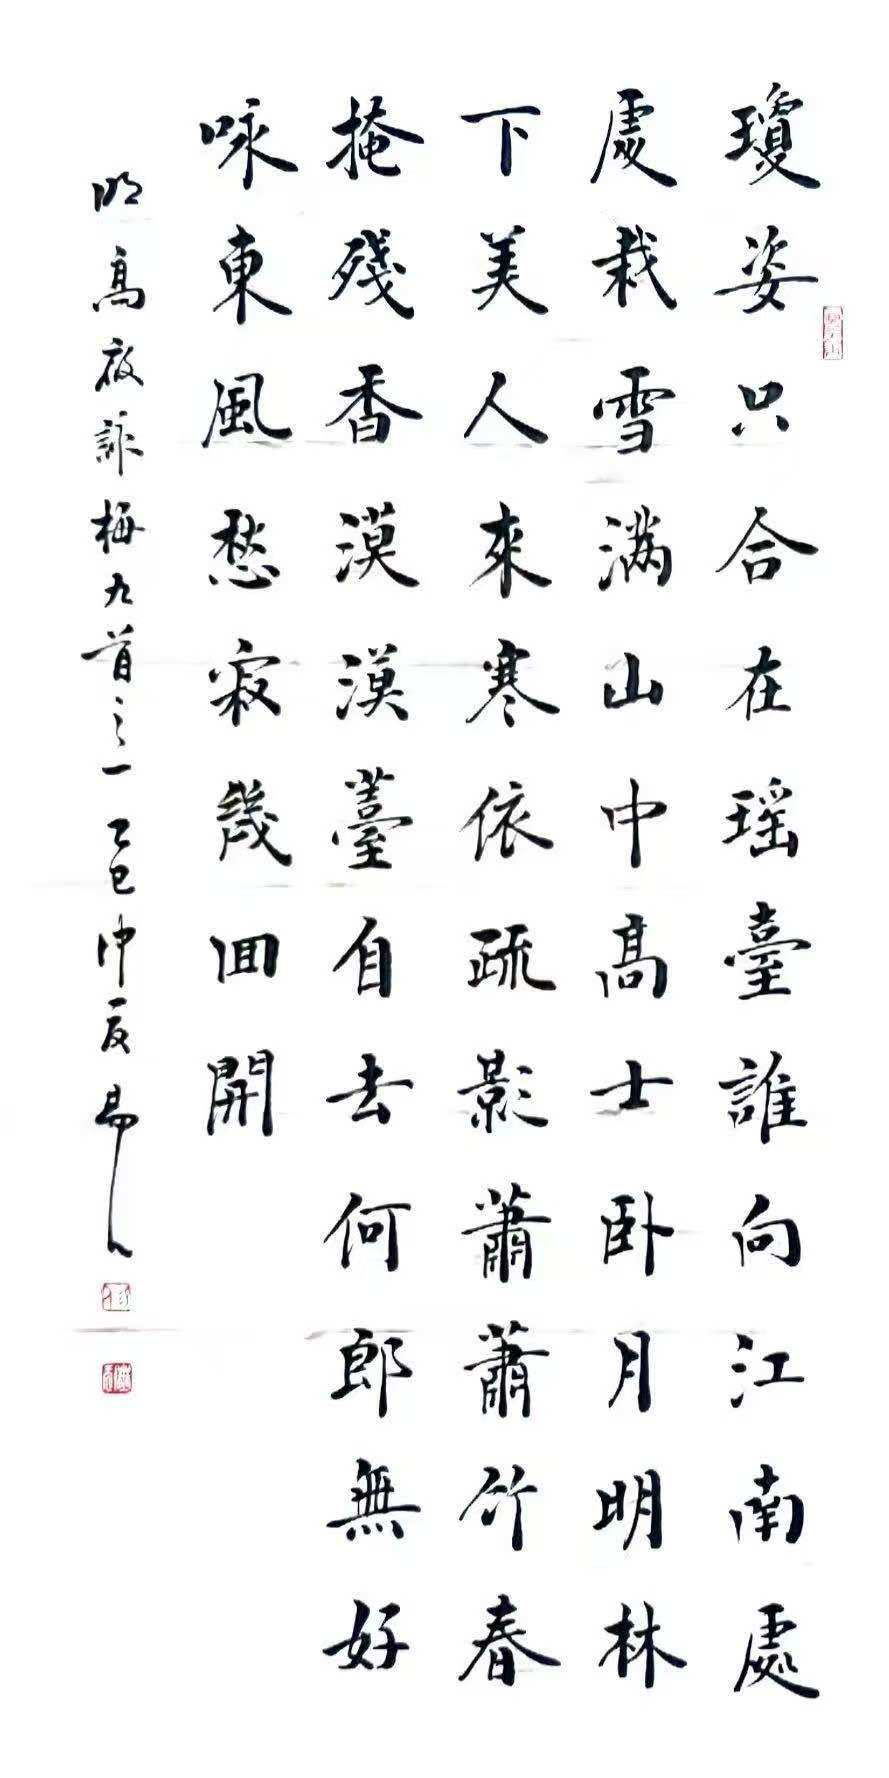 瓊姿只合在瑶臺誰向江南處
處栽雪滿山中高士卧月明林
下美人來寒依疏影蕭蕭竹春
掩殘香漠漠薹自去何郎無好
咏東風愁寂幾回開
明高啟詠梅九首之一 乙巳仲夏易